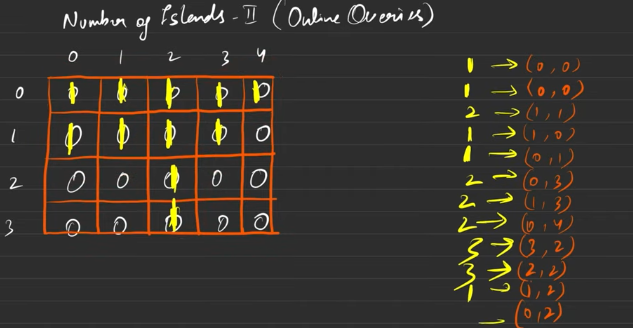 Number of Islands - II (Online Queries)
0 1 2 3 4
0 0 0 0 0 0
1 0 0 0 0 0
2 0 0 0 0 0
3 0 0 0 0 0
1 → (0,0)
1 → (0,0)
2 → (1,1)
1 → (1,0)
1 → (0,1)
2 → (0,3)
2 → (1,3)
2 → (0,4)
3 → (3,2)
3 → (2,2)
1 → (1,2)
→ (0,2)